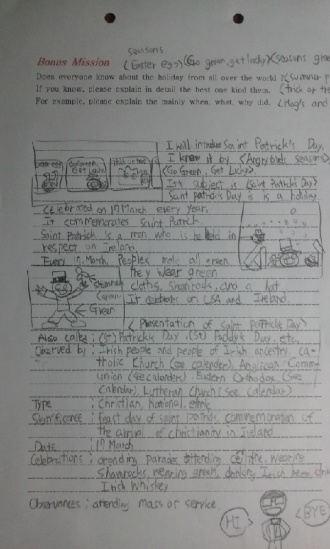 seasons
(Easter eggs) (Go green, get lucky) (seasons gree
Bonus Mission
Does everyone know about the holiday from all over the world ? (summer p
If you know, please explain in detail the best one kind them. (trick or th
For example, please explain the mainly when, what, why did.
I will introduce Saint Patrick's Day.
I know it by <Angry birds seasons>
<Go Green, Get Lucky>.
It's subject is <Saint Patrick's Day>
Saint patrick's Day is a holiday
celebrated on 17 March every year.
It commemorates Saint Patrick
Saint Patrick is a man who is held in
respect on Ireland.
Every 17, March, People make all green.
they wear green
cloths, Shamrocks, and a hat.
It celebrate on USA and Ireland.
Shamrock
Green
( Presentation of Saint Patrick Day )
Also called : (St) Patrick's Day, (St) Paddy's Day, etc.
Observed by : Irish people and people of Irish ancestry, ca-
tholic Church (see calender), Anglican Comm-
union (see calenders). Eastern Orthodox (see
calendar), Lutheran Church (see calendar)
Type : Christian, national, ethnic
Significance : feast day of saint Patrick, commemoration of
the arrival of christianity in Ireland
Date : 17 March
Celebrations : attending parades, attending wearing
shamrocks, wearing green, drinking Irish beer,
Irish whiskey
Observances : attending mass or service
HI
BYE